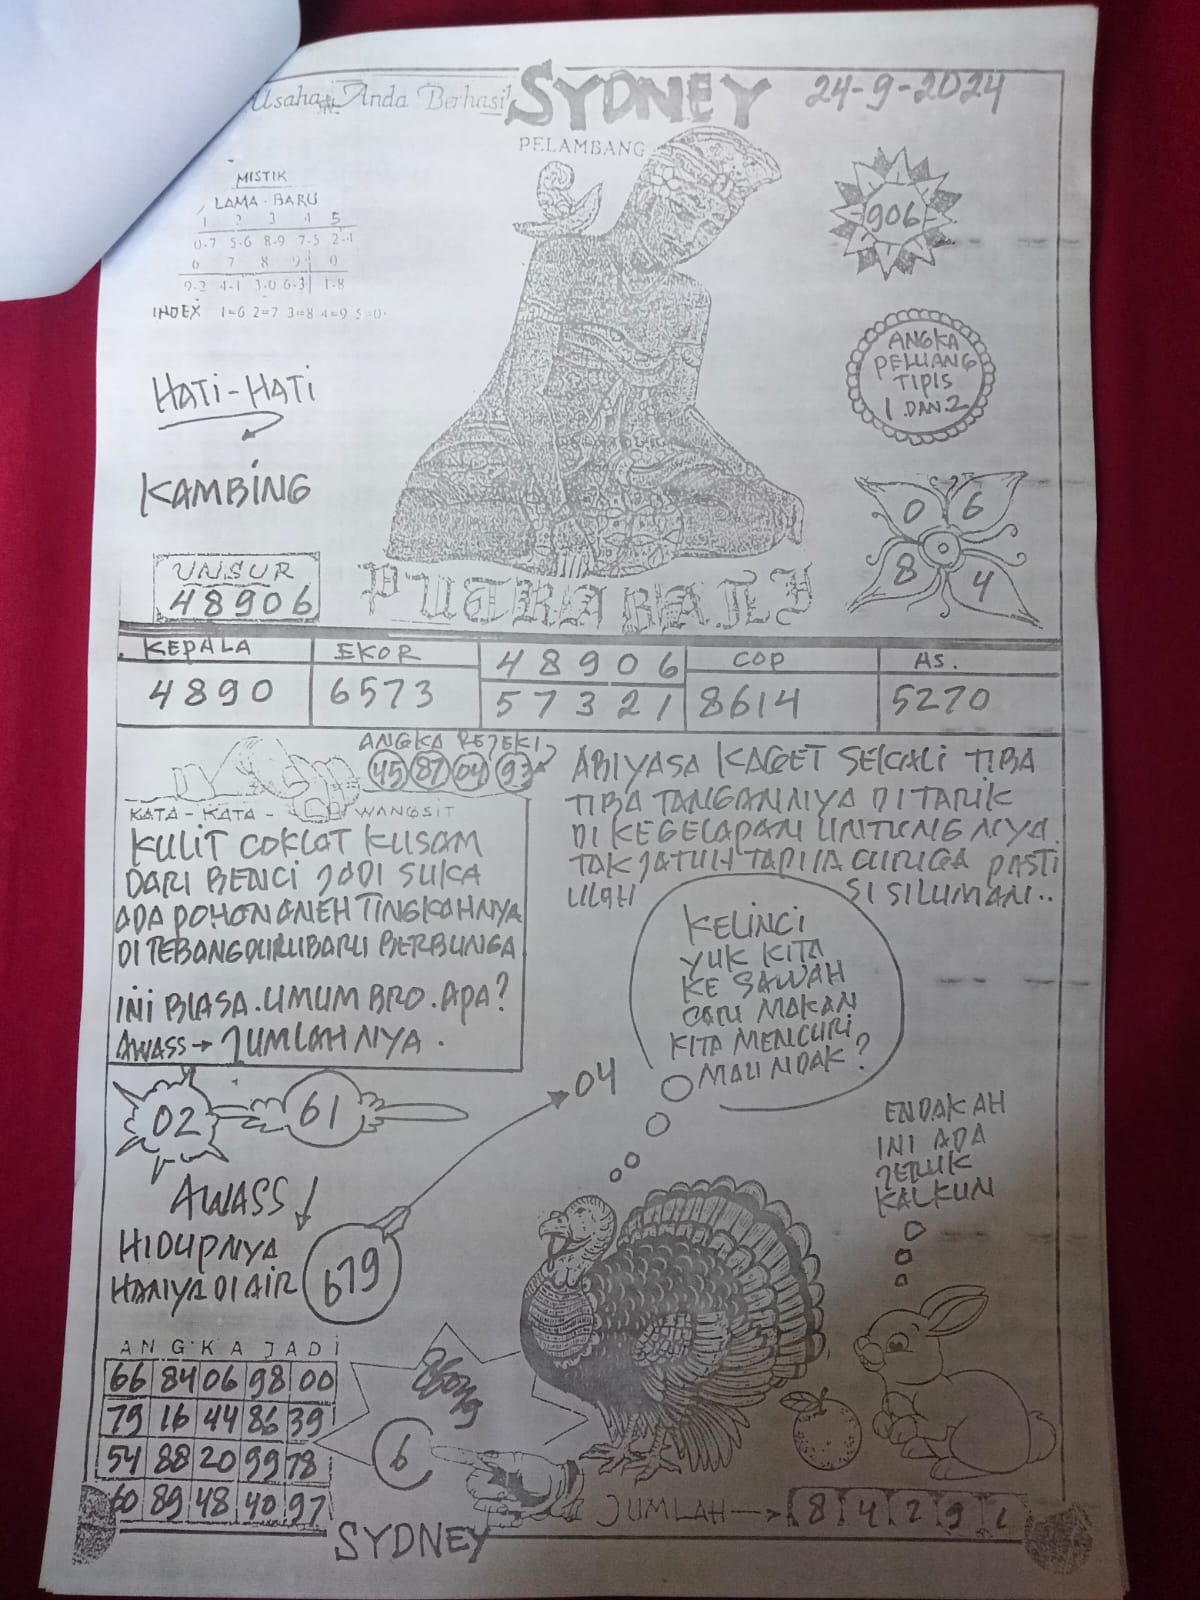 Usaha Anda Berhasil
SYDNEY
24-9-2024
PELAMBANG
MISTIK
LAMA - BARU
1 2 3 4 5
0-7 5-6 8-9 7-5 2-1
6 7 8 9 0
9-2 4-1 3-0 6-3 1-8
INDEX 1=6 2=7 3=8 4=9 5=0
906
ANGKA
PELUANG
TIPIS
1 DAN 2
HATI-HATI
KAMBING
0 6
8 4
UNSUR
48906
PUTRA BALI
KEPALA EKOR 48906 COP AS.
4890 6573 57321 8614 5270
ANGKA REJEKI
45 87 04 93
KATA - KATA - WANGSIT
KULIT COKLAT KUSAM
DARI BENCI JADI SUKA
ADA POHON ANEH TINGKAHNYA
DI TEBANG DULU BARU BERBUNGA
INI BIASA. UMUM BRO. APA?
AWASS → JUMLAHNYA.
ABIYASA KAGET SEKALI TIBA
TIBA TANGANNYA DI TARIK
DI KEGELAPAN UNTUNG NYA
TAK JATUH TAPI IA CURIGA PASTI
ULAH SI SILUMAN..
KELINCI
YUK KITA
KE SAWAH
CARI MAKAN
KITA MENCURI
MAU NDAK?
02 61
04
AWASS
HIDUPNYA
HANYA DI AIR
679
ENDAK AH
INI ADA
JERUK
KALKUN
ANGKA JADI
66 84 06 98 00
79 16 44 86 39
54 88 20 99 78
60 89 48 40 97
6
JUMLAH → 8 4 2 9 1
SYDNEY